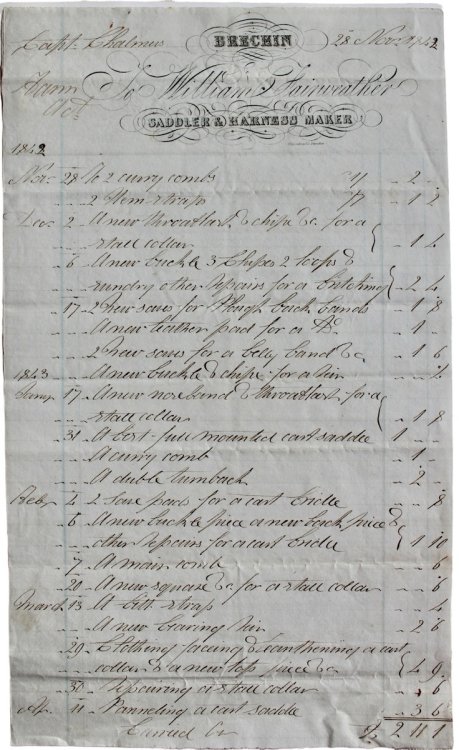 BRECHIN
Capt. Chalmers 28 Novr 1842
Farm To William Fairweather
Act
SADDLER & HARNESS MAKER
1842
Novr 28 To 2 curry combs 1/ - 2 -
" " 2 Hem straps 7d - 1 2
Decr 2 A new throatlash & chipe &c for a
stall collar - 1 4
" 6 A new buckle 3 Chipes 2 loops &
sundry other repairs for a britching - 2 4
" 17 2 New for Plough back bands - 1 8
" " A new leather pad for a Do - 1 -
" " 2 New for a belly band &c - 1 6
1843 " " A new buckle & chipe for a
Jany 17 A new nose band & throatlash for a
stall collar - 1 8
" 31 A best full mounted cart saddle 1 - -
" " A curry comb - 1 -
" " A duble turnback - 2 -
Feby 4 2 pads for a cart bridle - - 8
" 6 A new buckle piece a new back piece &
other repairs for a cart bridle - 1 10
" 7 A main comb - - 6
" 20 A new square &c for a stall collar - - 6
March 13 A bitt strap - - 4
" " A new bearing - 2 6
" 29 Clothing facing & a cart
collar & a new top piece &c - 4 9
" 30 Repairing a stall collar - - 6
Ap. 11 Panneling a cart saddle - 3 6
Carried Or £ 2 11 1